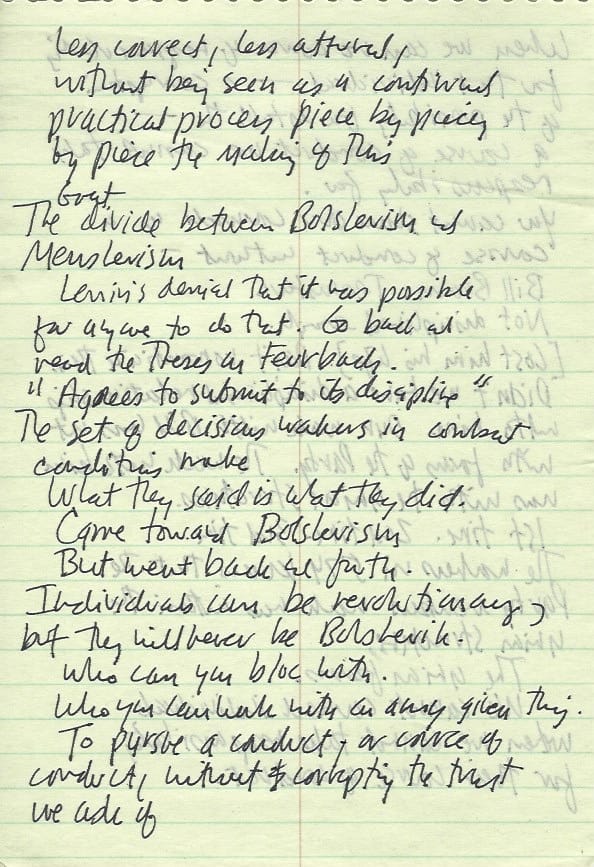 Less correct, less attuned,
without being seen as a continued
practical process piece by piece,
by piece the making of this
Event
The divide between Bolshevism and
Menshevism
Lenin's denial that it was possible
for anyone to do that. Go back and
read the Theses on Feurbach.
"Agrees to submit to its discipline"
The set of decisions workers in combat
conditions make
What they said is what they did.
Came toward Bolshevism
But went back and forth.
Individuals can be revolutionary,
but they will never be Bolshevik.
Who can you bloc with.
Who you can work with on any given thing.
To pursue a conduct, or course of
conduct, without corrupting the trust
we ask of